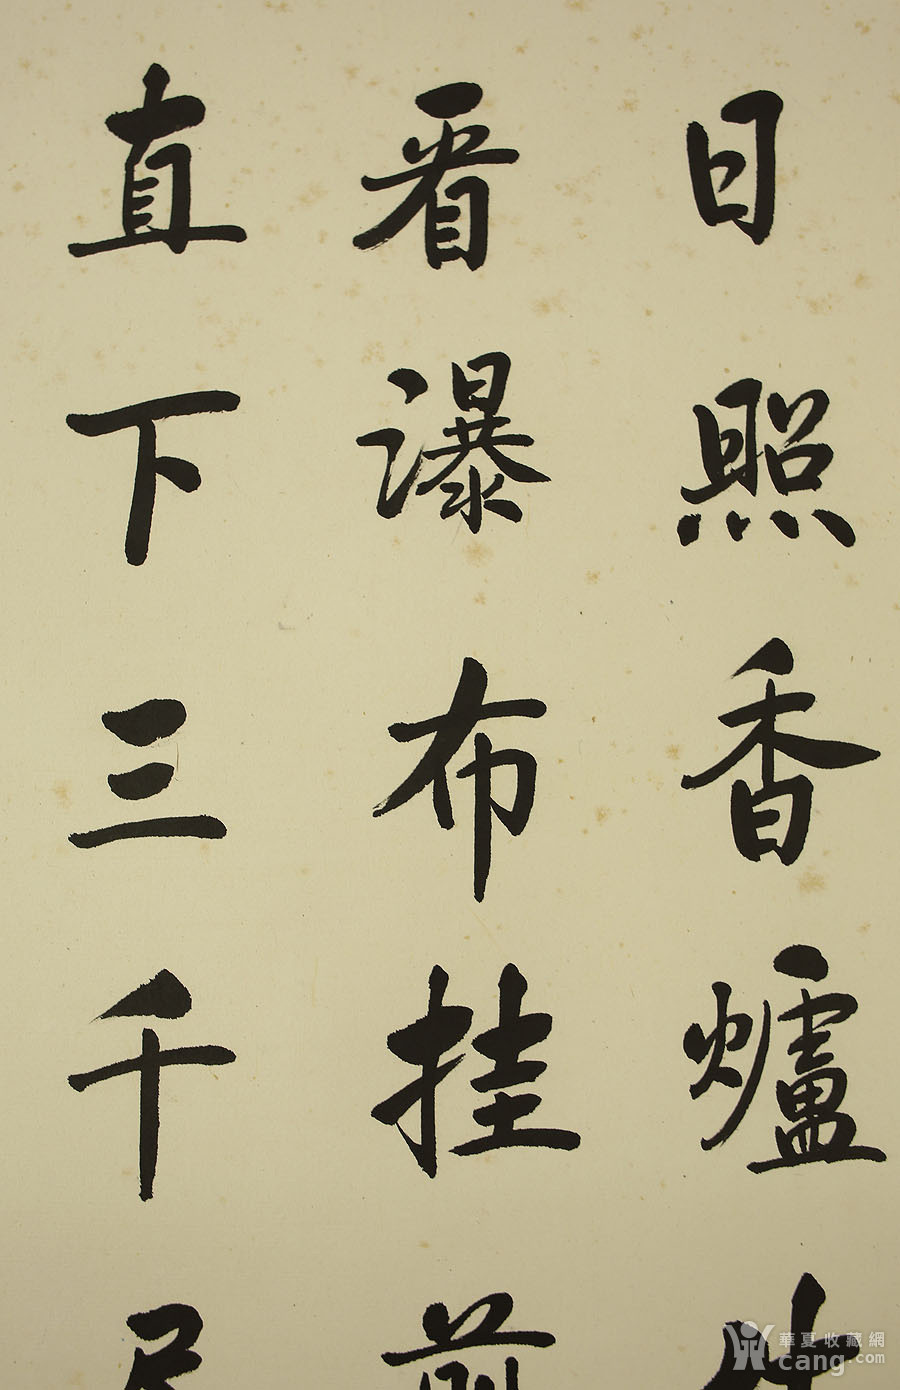 日照香爐
看瀑布挂前
直下三千尺
華夏收藏網
cang.com